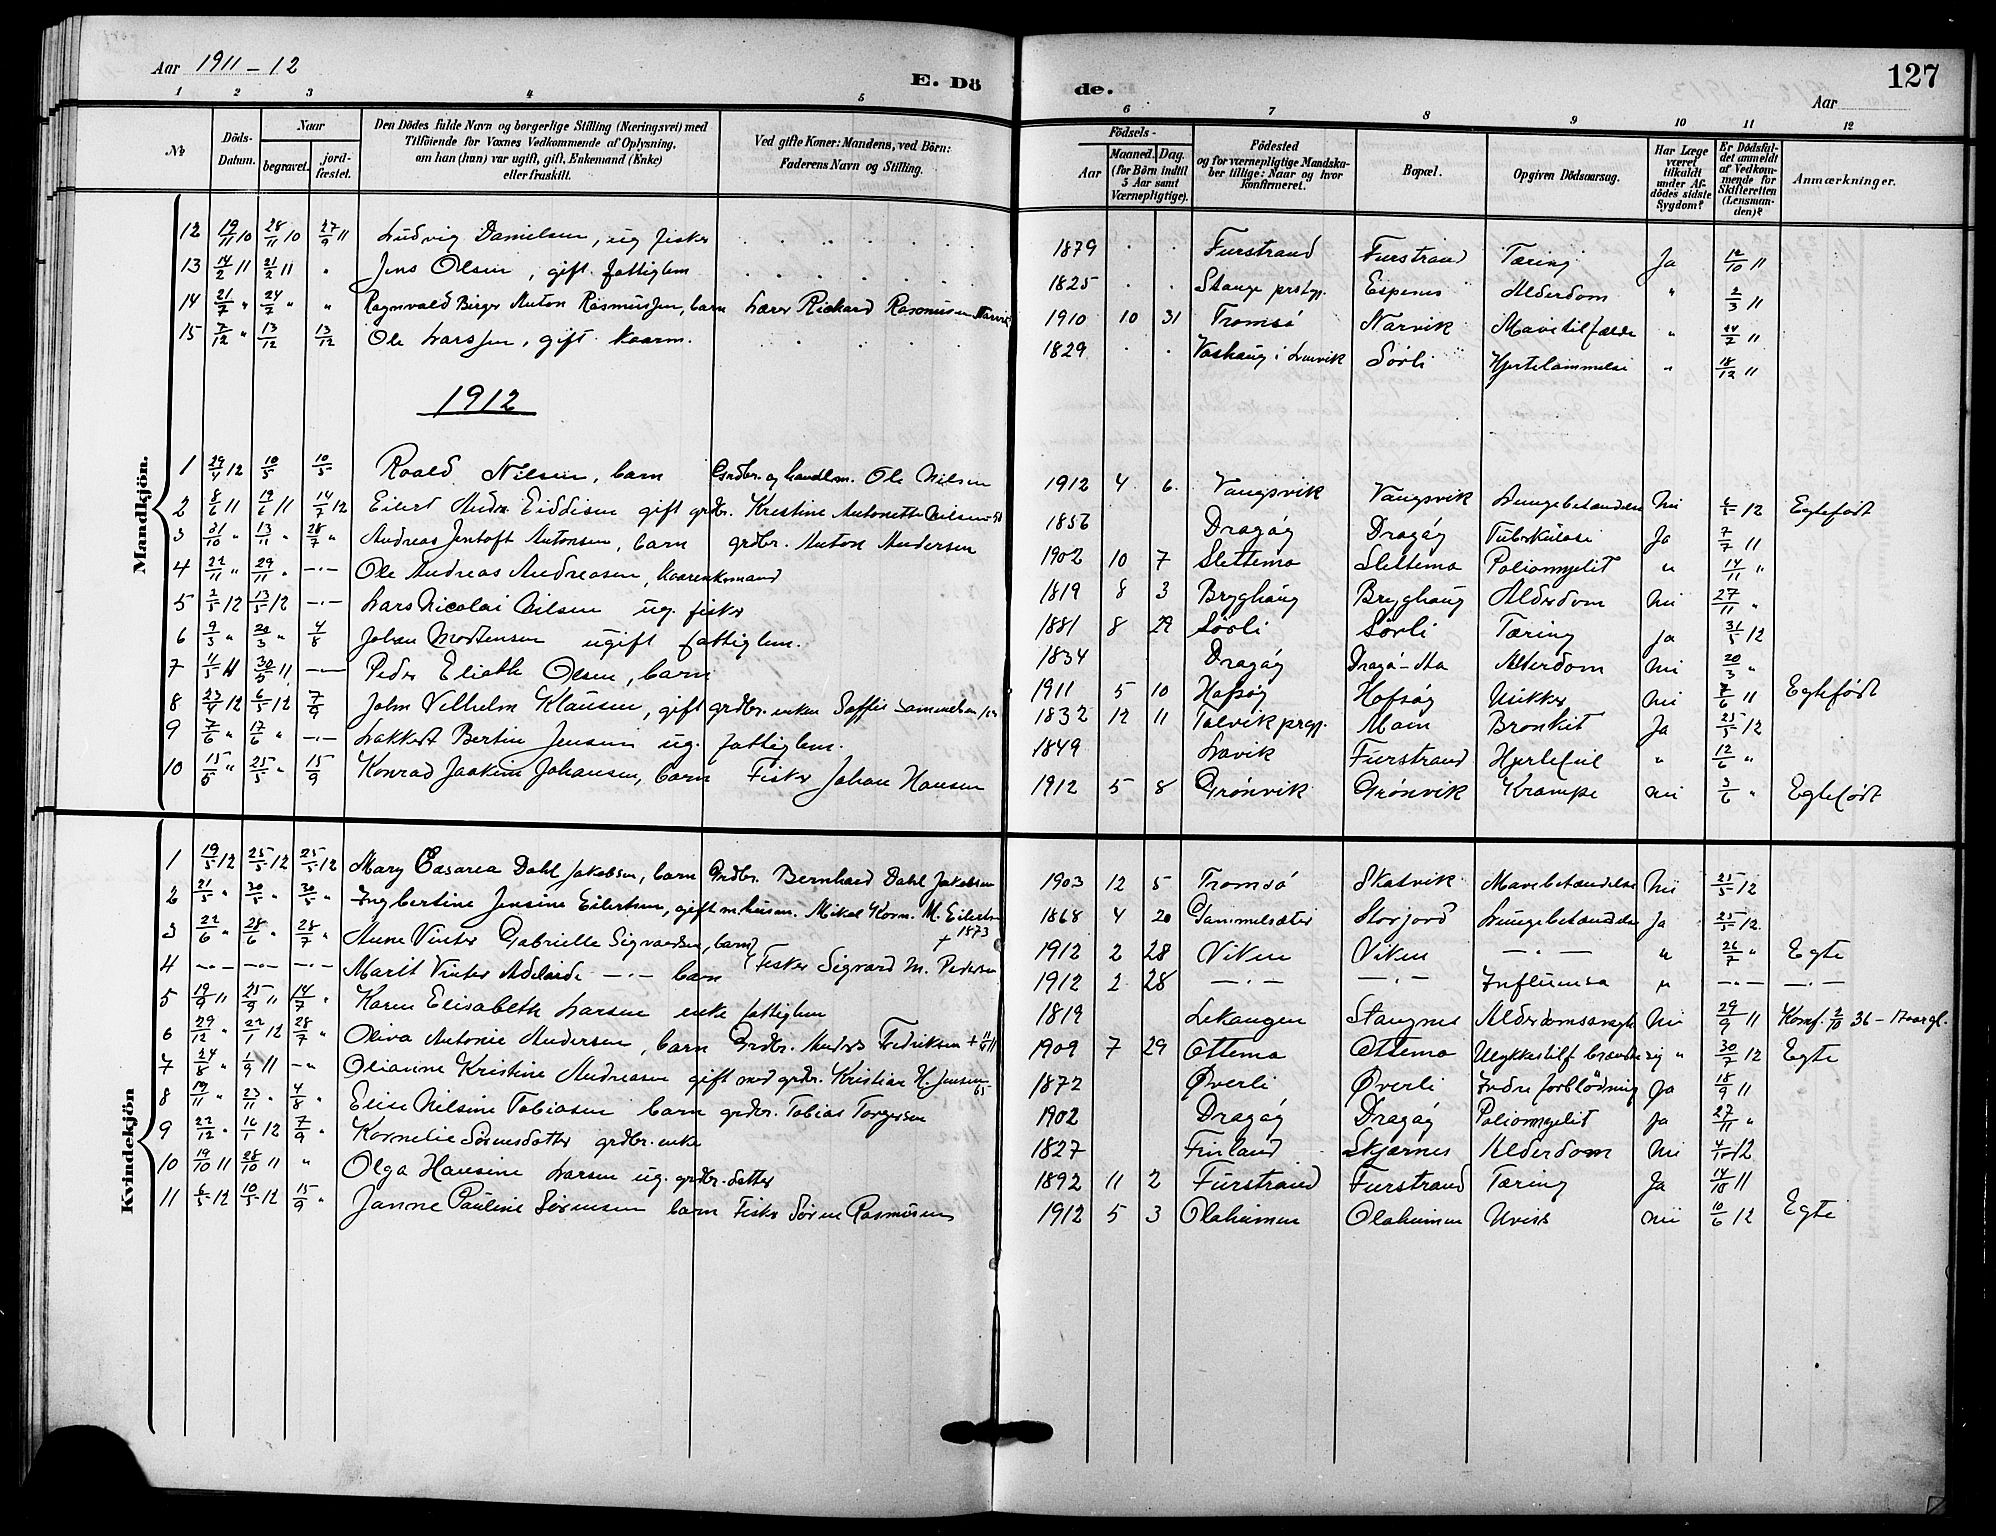 Aar 1911-12
E. Dö de.
127
Aar
1 2 3 4 5 6 7 8 9 10 11 12
No
Döds-Datum.
Naar
begravet.
jord-fæstet.
Den Dödes fulde Navn og borgerlige Stilling (Næringsvei) med
Tilföiende for Voxnes Vedkommende af Oplysning,
om han (hun) var ugift, gift, Enkemand (Enke)
eller fraskilt.
Ved gifte Koner: Mandens, ved Börn:
Faderens Navn og Stilling.
Födsels-
Aar
Maaned. Dag.
(for Börn indtil
5 Aar samt
Værnepligtige).
Födested
og for værnepligtige Mandska-
ber tillige: Naar og hvor
Konfirmeret.
Bopæl.
Opgiven Dödsaarsag.
Har Læge
været
tilkaldt
under Af-
dödes sidste
Sygdom?
Er Dödsfal-
det anmeldt
af Vedkom-
mende for
Skifteretten
(Lensman-
den)?
Anmærkninger.
Mandkjön.
12 19/11 10 28/11 10 27/9 11 Ludvig Danielsen, ug. fisker 1879 Furstrand Furstrand Tæring Ja 12/10 11
13 14/2 11 21/2 11 " Jens Olsen, gift. fattiglem 1825 Stange prstgj. Espenes Alderdom " 2/3 11
14 21/7 " 24/7 " " Ragnvald Birger Anton Rasmussen, barn Lærer Rickard Rasmussen Narvik 1910 10 31 Tromsö Narvik Mavetilfælde " 24/7 11
15 7/12 " 13/12 13/12 Ole Larssen, gift. kaarm. 1829 i Lenvik Sørli Hjertelammelse " 18/12 11
1912
1 29/4 12 10/5 10/5 Roald Nilsen, barn Grdbr. og handlm. Ole Nilsen 1912 4 6 Vangsvik Vangsvik Lungebetændelse Nei 6/5 12 Egtefødt
2 8/6 11 19/6 11 14/7 12 Eilert Andr. Eidissen gift grdbr. Kristine Antonette Nilsen 1856 Dragåg Dragåg Tuberkulose Ja 7/7 11
3 31/10 " 13/11 " 28/7 " Andreas Jentoft Antonsen, barn grdbr. Anton Andersen 1902 10 7 Slettemo Slettemo Poliomyelit " 14/11 "
4 22/11 " 29/11 " -·- Ole Andreas Andreasen, kaarenkemand 1819 8 3 Brygghaug Brygghaug Alderdom Nei 27/11 "
5 2/5 12 13/5 12 -·- Lars Nicolai Nilsen ug. fisker 1881 8 29 Sørli Sørli Tæring Ja 31/5 12
6 9/3 " 20/3 " 4/8 Johan Mortensen ugift fattiglem. 1834 Dragåg Alderdom Nei 20/3 "
7 11/5 11 30/5 11 -- Peder Eliath Olsen, barn 1911 5 10 Hofsøg Hofsøg Usikker Nei 7/6 11 Egtefødt
8 23/4 12 6/5 12 7/9 John Vilhelm Klausen, gift grdbr. 1832 12 11 Talvik prgj. Moen Bronkit Ja 25/5 12
9 7/6 " 17/6 " -·- Lakkert Bertin Jensen ug. fattiglem. 1849 Lavik Furstrand Hjertefeil " 12/6 "
10 15/5 " 25/5 " 15/9 Konrad Joakim Johansen, barn Fisker Johan Hansen 1912 5 8 Grønvik Grønvik Krampe Nei 3/6 " Egtefødt
Kvindekjön
1 19/5 12 25/5 12 25/5 12 Mary Casarea Dahl Jakobsen, barn Grdbr. Bernhard Dahl Jakobsen 1903 12 5 Tromsö Skatvik Mavebetændelse Nei 21/5 12
2 21/5 " 30/5 " 30/5 " Ingbertine Jensine Eilertsen, gift m. husm. Mikal Korn. M. Eilertsen f 1873 1868 4 20 Gammelsæter Storjord Lungebetændelse Ja 25/5 12
3 22/6 " 28/6 " 28/7 " Anne Vinter Gabrielle Sigvardsen, barn 1912 2 28 Viken Viken -·- " 26/7 " Egte
4 -·- -·- -·- Marit Vinter Adelaide -·- barn Fisker Sigvard M. Pedersen 1912 2 28 -·- -·- Influensa " -·- -·-
5 19/9 11 25/9 11 14/7 " Karen Elisabeth Larsen enke fattiglem 1819 Lekangen Stangnes Nei 29/9 11 Konf. 2/10 36 - 17 aar gl.
6 29/12 " 22/1 12 28/7 " Oliva Antonie Andersen, barn Grdbr. Anders Fredriksen 1909 7 29 Ottemo Ottemo Ulykkestilf. 30/7 12 Egte
7 24/8 " 1/9 11 -" Olianne Kristine Andreasen gift med grdbr. Kristian H. Jensen 65 1872 Øverli Øverli Indre forblødning Ja 18/9 11
8 19/11 " 23/11 " 4/8 " Elise Nilsine Tobiasen barn grdbr. Tobias Torgersen 1902 Dragåg Dragåg Poliomyelit Ja 27/11 "
9 22/12 " 16/1 12 7/9 " Kornelie Sørensdatter grdbr. enke 1827 Finland Skjærnes Alderdom Nei
10 19/10 11 28/10 11 " Olga Hansine Larsen ug. grdbr. datter 1892 11 2 Furstrand Furstrand Tæring Ja 14/10 11
11 6/5 12 10/5 12 15/9 " Janne Pauline Sørensen barn Fisker Søren Rasmussen 1912 5 3 Olaheimen Olaheimen Uviss Nei 10/6 12 Egte